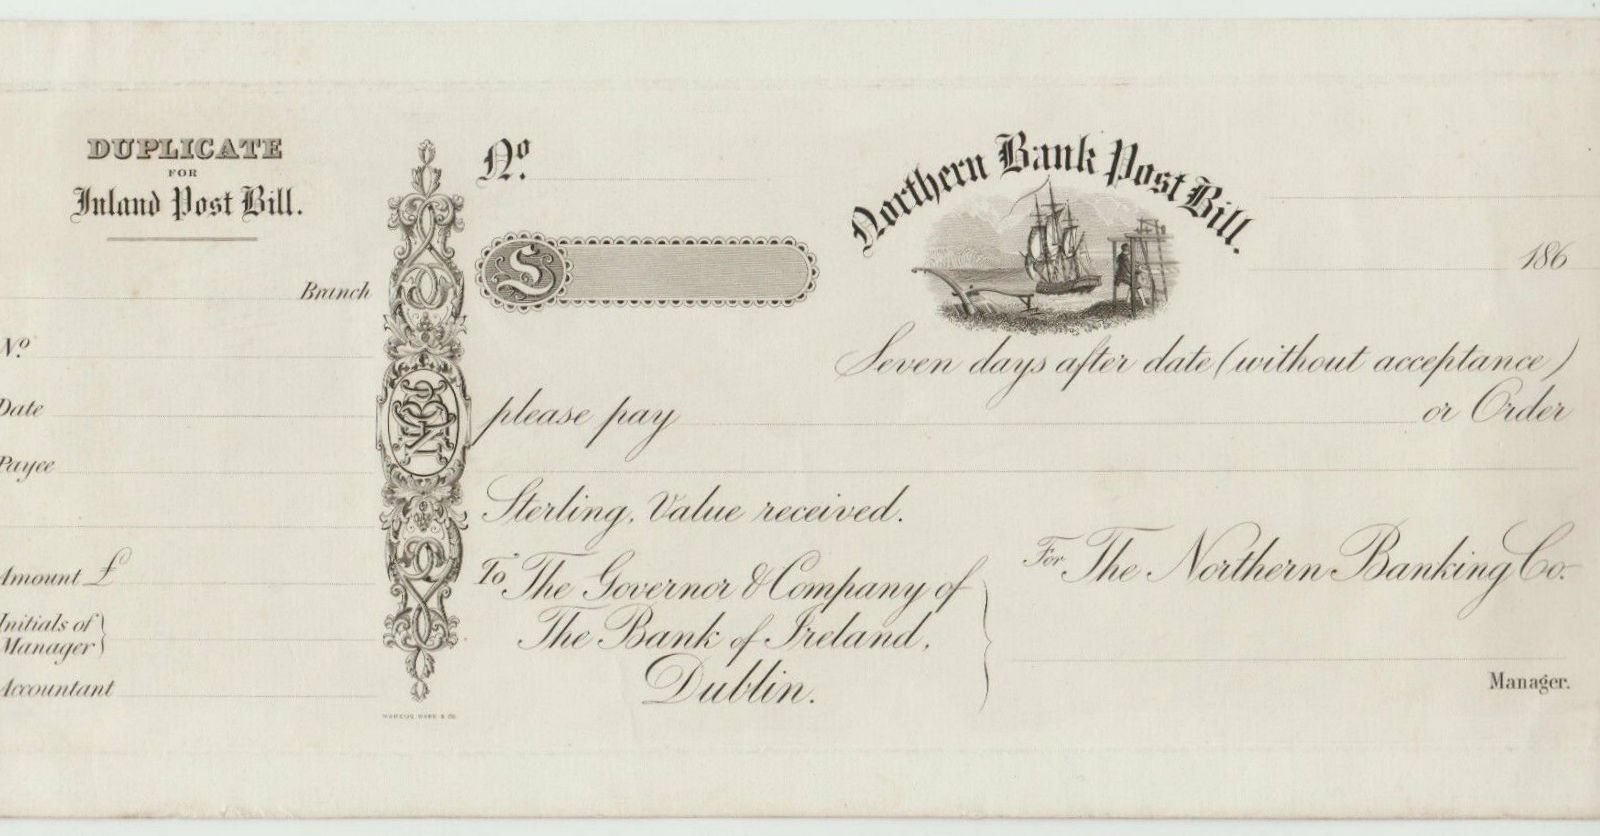 DUPLICATE
FOR
Inland Post Bill.
Branch
No.
Date
Payee
Amount £
Initials of
Manager
Accountant
MARCUS WARD & CO.
No.
Northern Bank Post Bill.
186
Seven days after date (without acceptance)
please pay or Order
Sterling, Value received.
To The Governor & Company of
The Bank of Ireland,
Dublin.
For The Northern Banking Co.
Manager.